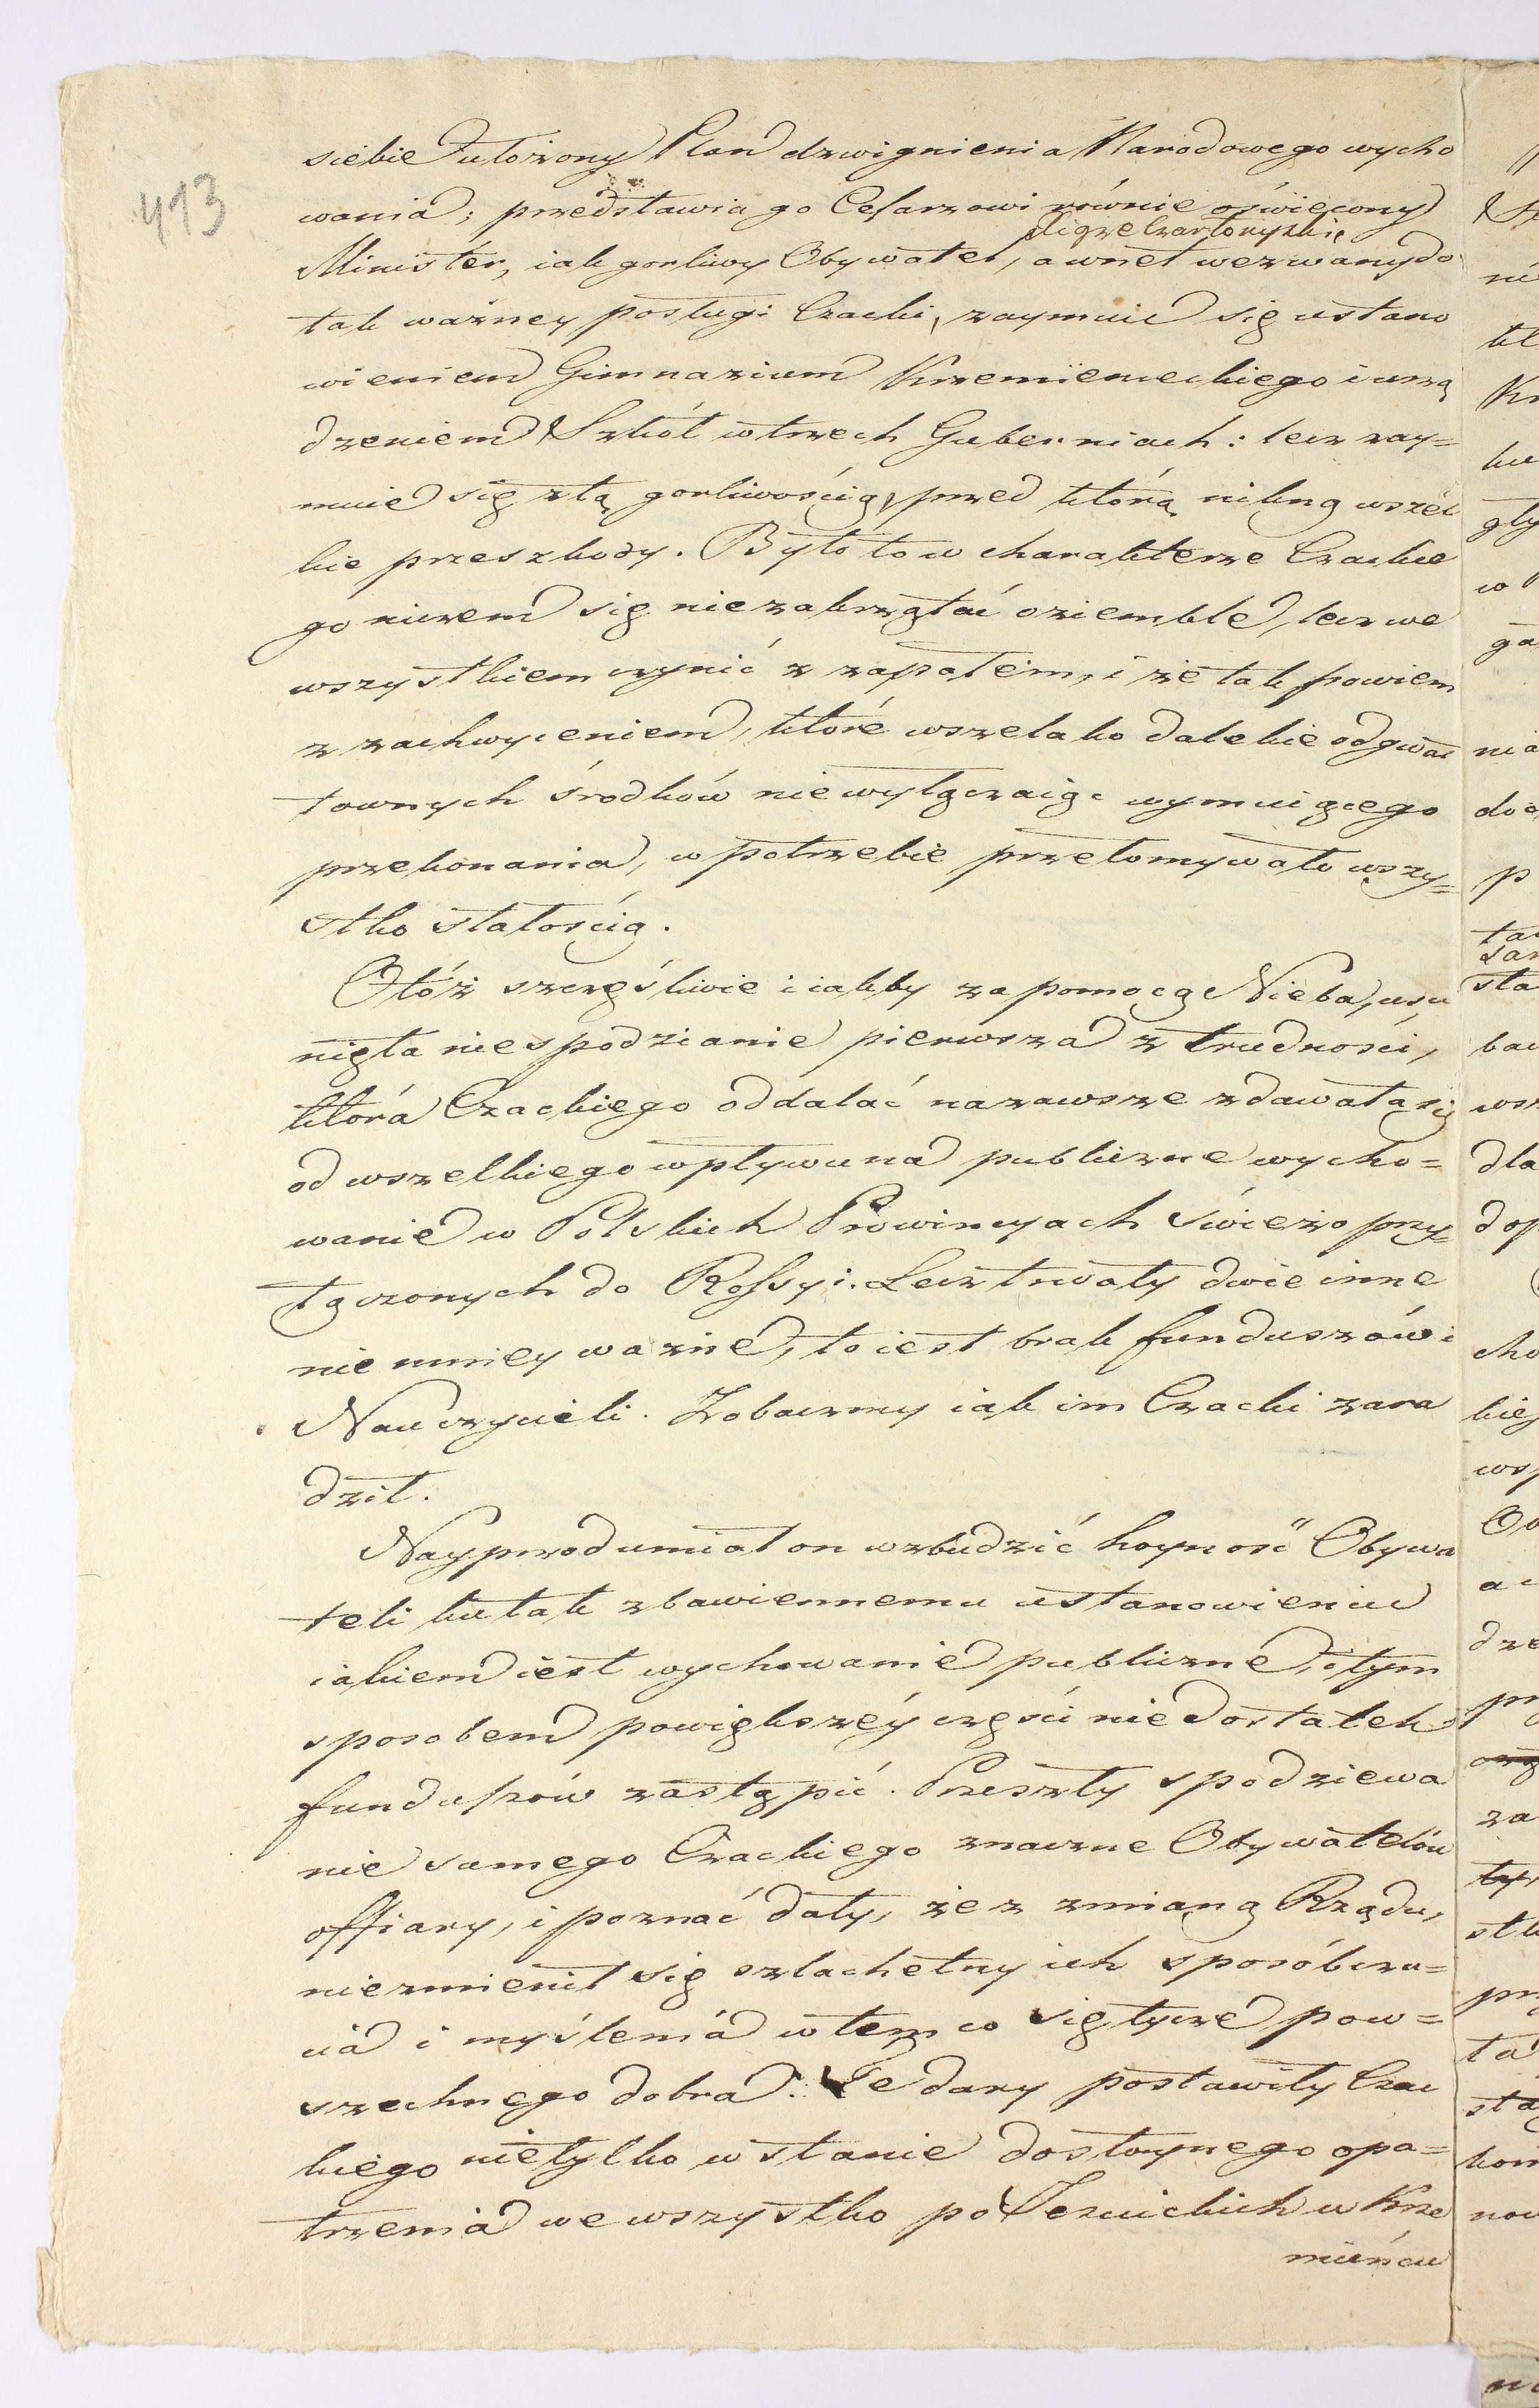 413
siebie ułożony Plan dzwignienia Narodowego wycho
wania; przedstawia go Cesarzowi równie oświecony
Xiąże Czartoryski
Minister, iak gorliwy Obywatel, a wnet wezwany do
tak ważney posługi Czacki, zaymuie się ustano
wieniem Gimnazium Krzemienieckiego i urzą
dzeniem Szkół w trzech Guberniach: lecz zay=
muie się z tą gorliwością, przed którą nikną wszel
kie przeszkody. Było to w charakterze Czackie
go niczem się nie zakrzątać oziemble, lecz we
wszystkiem czynić z zapałem, i że tak powiem
z zachwyceniem, które wszelako dalekie od gwał
townych środków nie wyłączaiąc wymuiącego
przekonania, w potrzebie przełomywało wszy=
stko stałością.
Otóż szczęśliwie i iakby za pomocą Nieba, usu
nięta niespodzianie pierwsza z trudności,
która Czackiego oddalać na zawsze zdawała się
od wszelkiego wpływu na publiczne wycho=
wanie w Polskich Prowincyach świeżo przy=
łączonych do Rossyi. Lecz trwały dwie inne
nie mniey ważne, to iest brak funduszów i
Nauczycieli. Zobaczmy iak im Czacki zara
dził.
Nayprzod umiał on wzbudzić hoyność Obywa
teli ku tak zbawiennemu ustanowieniu
iakiem iest wychowanie publiczne, i tym
sposobem powiększéy części niedostatek
funduszów zastąpić. Przeszły spodziewa
nie samego Czackiego znaczne Obywatelów
offiary, i poznać dały, że z zmianą Rządu,
niezmienił się szlachetny ich sposób czu=
cia i myślenia w tem co się tycze pow=
szechnego dobra. Te dary postawiły Czac
kiego nietylko w stanie dostoynego opa=
trzenia we wszystko po Jezuickich w Krze
mieńcu